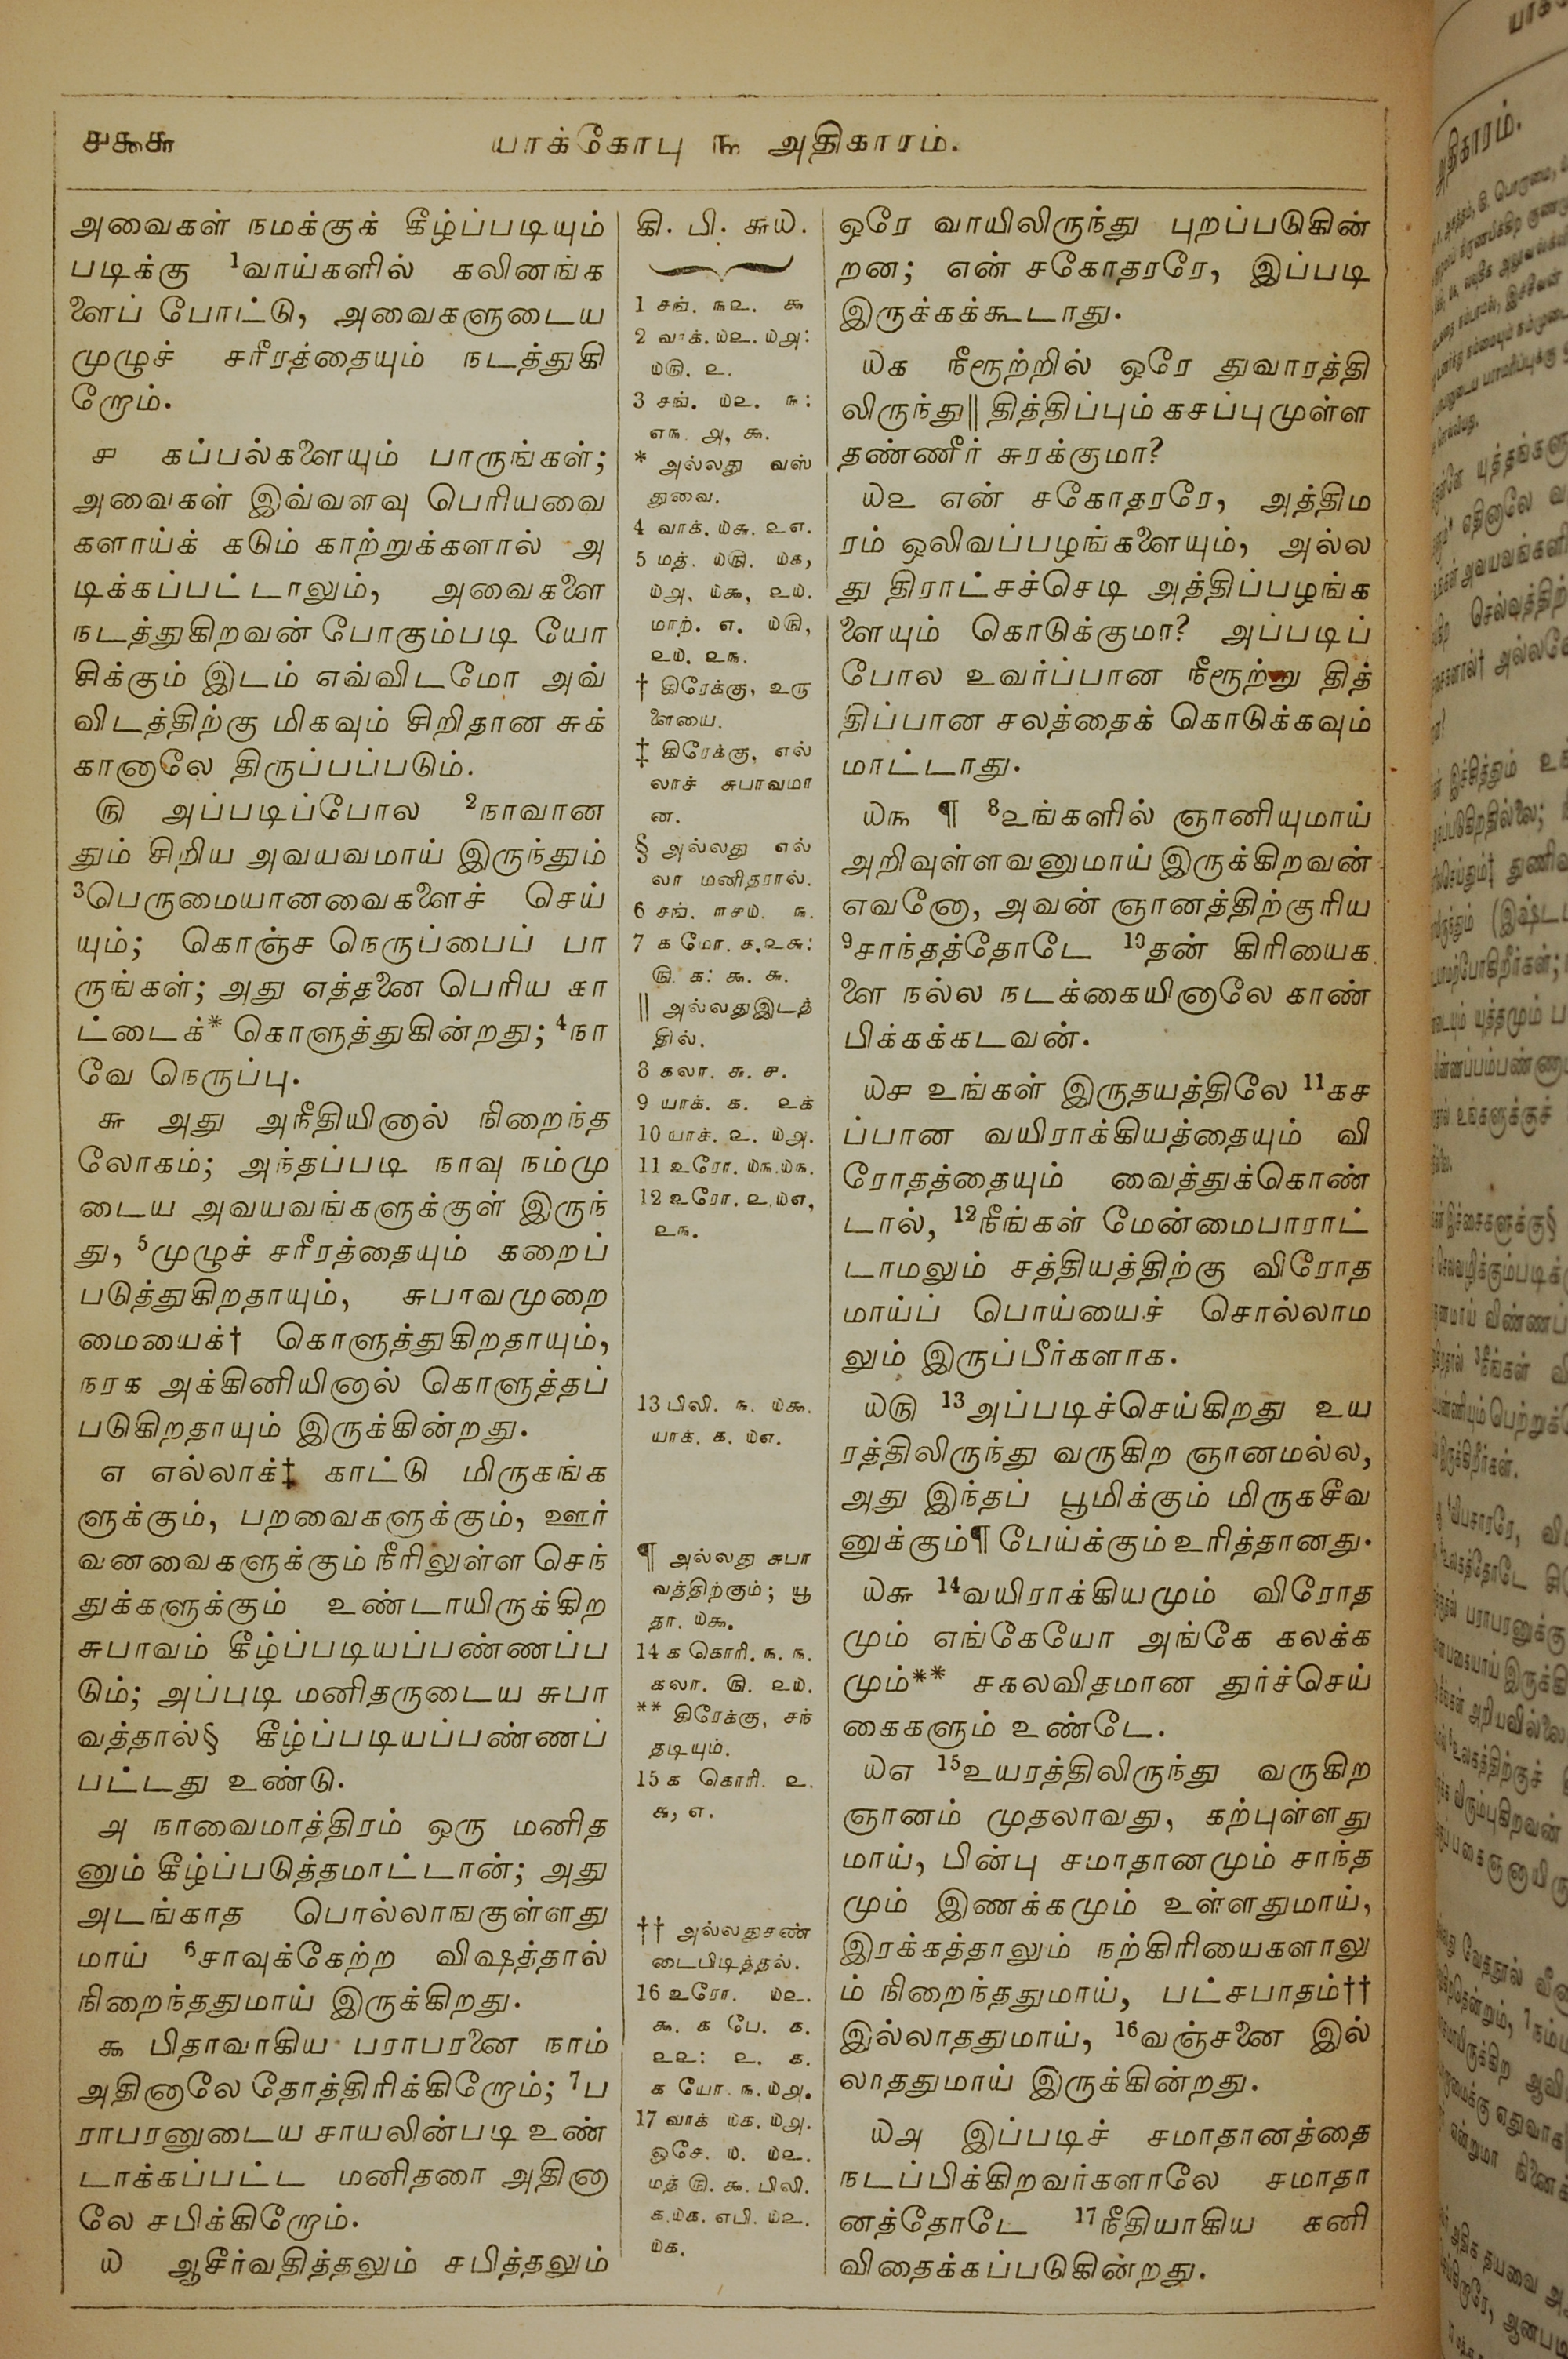 ௪௯௬
யாக்கோபு ௩ அதிகாரம்.
அவைகள் நமக்குக் கீழ்ப்படியும்
படிக்கு ¹வாய்களில் கலினங்க
ளைப் போட்டு, அவைகளுடைய
முழுச் சரீரத்தையும் நடத்துகி
றோம்.
௪ கப்பல்களையும் பாருங்கள்;
அவைகள் இவ்வளவு பெரியவை
களாய்க் கடும் காற்றுக்களால் அ
டிக்கப்பட்டாலும், அவைகளை
நடத்துகிறவன் போகும்படி யோ
சிக்கும் இடம் எவ்விடமோ அவ்
விடத்திற்கு மிகவும் சிறிதான சுக்
கானாலே திருப்பப்படும்.
௫ அப்படிப்போல ²நாவான
தும் சிறிய அவயவமாய் இருந்தும்
³பெருமையானவைகளைச் செய்
யும்; கொஞ்ச நெருப்பைப் பா
ருங்கள்; அது எத்தனை பெரிய கா
ட்டைக்* கொளுத்துகின்றது; ⁴நா
வே நெருப்பு.
௬ அது அநீதியினால் நிறைந்த
லோகம்; அந்தப்படி நாவு நம்மு
டைய அவயவங்களுக்குள் இருந்
து, ⁵முழுச் சரீரத்தையும் கறைப்
படுத்துகிறதாயும், சுபாவமுறை
மையைக்† கொளுத்துகிறதாயும்,
நரக அக்கினியினால் கொளுத்தப்
படுகிறதாயும் இருக்கின்றது.
௭ எல்லாக்‡ காட்டு மிருகங்க
ளுக்கும், பறவைகளுக்கும், ஊர்
வனவைகளுக்கும் நீரிலுள்ள செந்
துக்களுக்கும் உண்டாயிருக்கிற
சுபாவம் கீழ்ப்படியப்பண்ணப்ப
டும்; அப்படி மனிதருடைய சுபா
வத்தால்§ கீழ்ப்படியப்பண்ணப்
பட்டது உண்டு.
௮ நாவைமாத்திரம் ஒரு மனித
னும் கீழ்ப்படுத்தமாட்டான்; அது
அடங்காத பொல்லாஙகுள்ளது
மாய் ⁶சாவுக்கேற்ற விஷத்தால்
நிறைந்ததுமாய் இருக்கிறது.
௯ பிதாவாகிய பராபரனை நாம்
அதினாலே தோத்திரிக்கிறோம்; ⁷ப
ராபரனுடைய சாயலின்படி உண்
டாக்கப்பட்ட மனிதரை அதினா
லே சபிக்கிறோம்.
௰ ஆசீர்வதித்தலும் சபித்தலும்
கி. பி. ௬௰.
1 சங். ௩௨. ௯
2 வாக். ௰௨. ௰௮:
௰௫. ௨.
3 சங். ௰௨. ௩:
௭௩. ௮, ௯.
* அல்லது வஸ்
துவை.
4 வாக். ௰௬. ௨௭.
5 மத். ௰௫. ௰௧,
௰௮, ௰௯, ௨௰.
மாற். ௭. ௰௫,
௨௰. ௨௩.
† கிரேக்கு, உரு
ளையை.
‡ கிரேக்கு, எல்
லாச் சுபாவமா
ன.
§ அல்லது எல்
லா மனிதரால்.
6 சங். ௱௪௰. ௩.
7 ௧ மோ. ௧.௨௬:
௫. ௧: ௯. ௬.
|| அல்லது இடத்
தில்.
8 கலா. ௬. ௪.
9 யாக். ௧. ௨௧
10 யாக். ௨. ௰௮.
11 உரோ. ௰௩.௰௩.
12 உரோ. ௨.௰௭,
௨௩.
13 பிலி. ௩. ௰௯.
யாக். ௧. ௰௭.
¶ அல்லது சுபா
வத்திற்கும்; யூ
தா. ௰௯.
14 ௧ கொரி. ௩. ௩.
கலா. ௫. ௨௰.
** கிரேக்கு, சந்
தடியும்.
15 ௧ கொரி. ௨.
௬, ௭.
†† அல்லது சண்
டைபிடித்தல்.
16 உரோ. ௰௨.
௯. ௧ பே. ௧.
௨௨: ௨. ௧.
௧ யோ. ௩. ௰௮.
17 வாக் ௰௧. ௰௮.
ஓசே. ௰. ௰௨.
மத் ௫. ௯. பிலி.
௧.௰௧. எபி. ௰௨.
௰௧.
ஒரே வாயிலிருந்து புறப்படுகின்
றன; என் சகோதரரே, இப்படி
இருக்கக்கூடாது.
௰௧ நீரூற்றில் ஒரே துவாரத்தி
லிருந்து|| தித்திப்பும் கசப்புமுள்ள
தண்ணீர் சுரக்குமா?
௰௨ என் சகோதரரே, அத்திம
ரம் ஒலிவப்பழங்களையும், அல்ல
து திராட்சச்செடி அத்திப்பழங்க
ளையும் கொடுக்குமா? அப்படிப்
போல உவர்ப்பான நீரூற்று தித்
திப்பான சலத்தைக் கொடுக்கவும்
மாட்டாது.
௰௩ ¶ ⁸உங்களில் ஞானியுமாய்
அறிவுள்ளவனுமாய் இருக்கிறவன்
எவனோ, அவன் ஞானத்திற்குரிய
⁹சாந்தத்தோடே ¹⁰தன் கிரியைக
ளை நல்ல நடக்கையினாலே காண்
பிக்கக்கடவன்.
௰௪ உங்கள் இருதயத்திலே ¹¹கச
ப்பான வயிராக்கியத்தையும் வி
ரோதத்தையும் வைத்துக்கொண்
டால், ¹²நீங்கள் மேன்மைபாராட்
டாமலும் சத்தியத்திற்கு விரோத
மாய்ப் பொய்யைச் சொல்லாம
லும் இருப்பீர்களாக.
௰௫ ¹³அப்படிச்செய்கிறது உய
ரத்திலிருந்து வருகிற ஞானமல்ல,
அது இந்தப் பூமிக்கும் மிருகசீவ
னுக்கும்¶ பேய்க்கும் உரித்தானது.
௰௬ ¹⁴வயிராக்கியமும் விரோத
மும் எங்கேயோ அங்கே கலக்க
மும்** சகலவிதமான துர்ச்செய்
கைகளும் உண்டே.
௰௭ ¹⁵உயரத்திலிருந்து வருகிற
ஞானம் முதலாவது, கற்புள்ளது
மாய், பின்பு சமாதானமும் சாந்த
மும் இணக்கமும் உள்ளதுமாய்,
இரக்கத்தாலும் நற்கிரியைகளாலு
ம் நிறைந்ததுமாய், பட்சபாதம்††
இல்லாததுமாய், ¹⁶வஞ்சனை இல்
லாததுமாய் இருக்கின்றது.
௰௮ இப்படிச் சமாதானத்தை
நடப்பிக்கிறவர்களாலே சமாதா
னத்தோடே ¹⁷நீதியாகிய கனி
விதைக்கப்படுகின்றது.